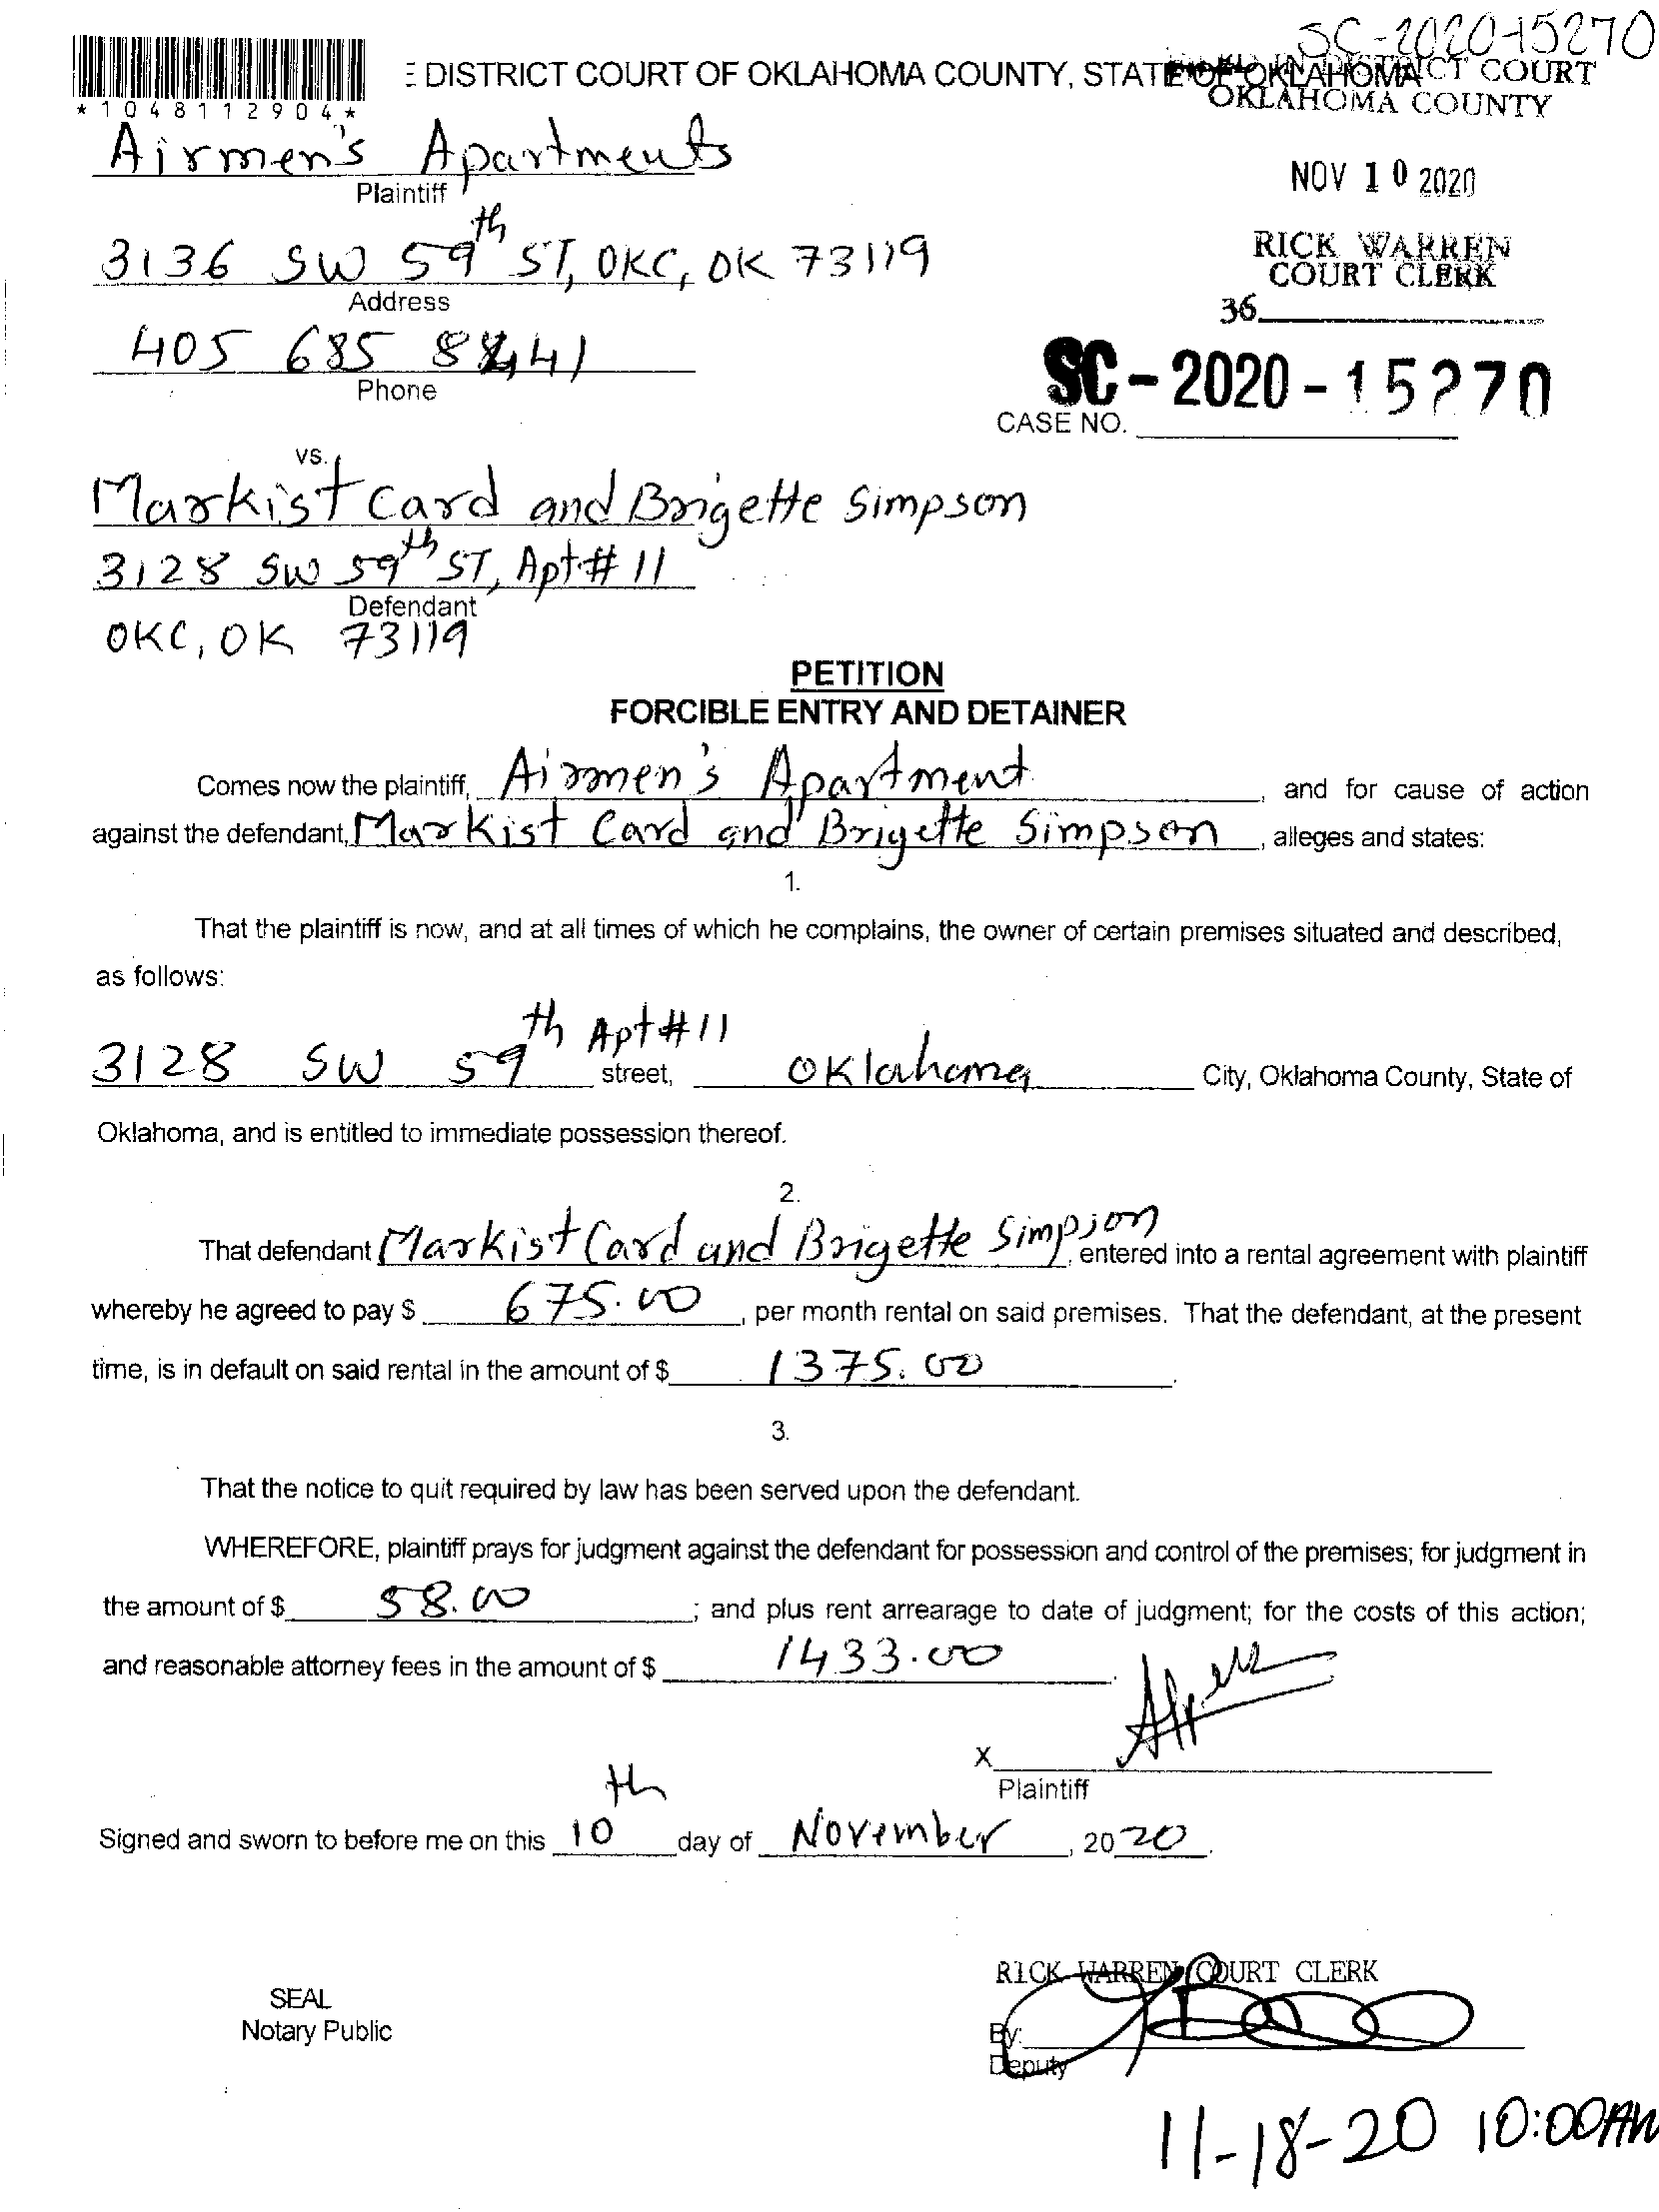 SC-2020-15270
E DISTRICT COURT OF OKLAHOMA COUNTY, STATE OF OKLAHOMA
IN DISTRICT COURT
OKLAHOMA COUNTY
*1048112904*
Airmen's Apartments
Plaintiff
NOV 10 2020
3136 SW 59th ST, OKC, OK 73119
Address
RICK WARREN
COURT CLERK
36
405 685
Phone
SC-2020-15270
CASE NO.
vs.
Markist Card and Brigette Simpson
3128 SW 59th ST, Apt# 11
Defendant
OKC, OK 73119
PETITION
FORCIBLE ENTRY AND DETAINER
Comes now the plaintiff, Airmen's Apartment, and for cause of action
against the defendant, Markist Card and Brigette Simpson, alleges and states:
1.
That the plaintiff is now, and at all times of which he complains, the owner of certain premises situated and described,
as follows:
3128 SW 59th Apt#11 street, Oklahoma City, Oklahoma County, State of
Oklahoma, and is entitled to immediate possession thereof.
2.
That defendant Markist Card and Brigette Simpson, entered into a rental agreement with plaintiff
whereby he agreed to pay $ 675.00, per month rental on said premises. That the defendant, at the present
time, is in default on said rental in the amount of $ 1375.00.
3.
That the notice to quit required by law has been served upon the defendant.
WHEREFORE, plaintiff prays for judgment against the defendant for possession and control of the premises; for judgment in
the amount of $ 58.00; and plus rent arrearage to date of judgment; for the costs of this action;
and reasonable attorney fees in the amount of $ 1433.00.
X
Plaintiff
Signed and sworn to before me on this 10th day of November, 2020.
RICK WARREN COURT CLERK
SEAL
Notary Public
By:
Deputy
11-18-20 10:00AM